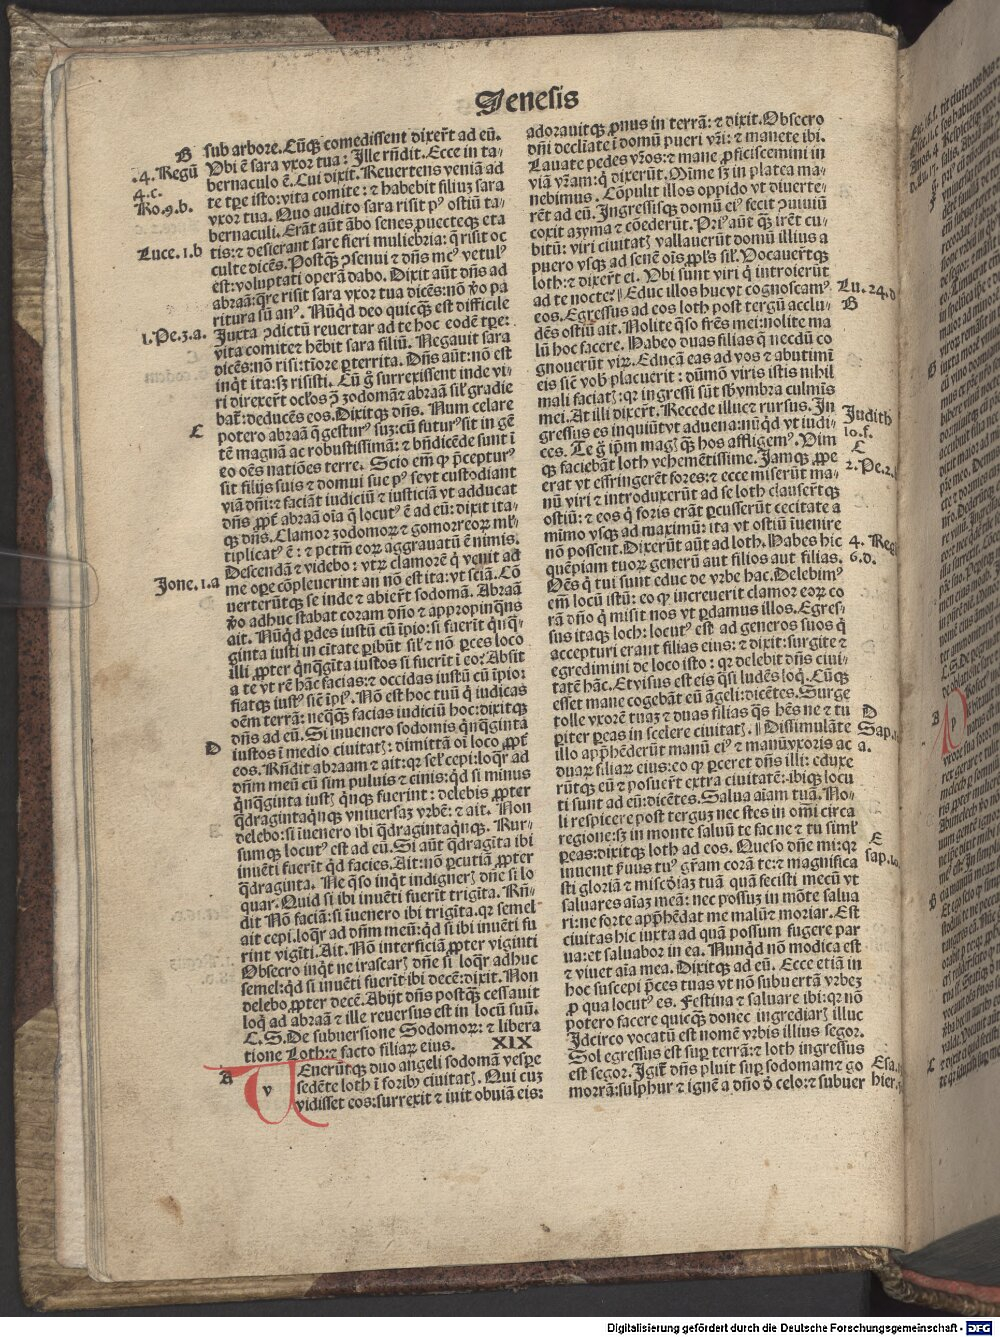 Genesis
B
.4. Regū
4.c.
Ro.9.b.
Luce.1.b
1.Pe.3.a.
C
Jone.1.a
D
sub arbore. Cūq̄ comedissent dixer̄t ad eū.
Vbi ē sara vxor tua: Ille rn̄dit. Ecce in ta-
bernaculo ē. Cui dixit. Reuertens veniā ad
te tpe isto: vita comite: ⁊ habebit filiuꝫ sara
vxor tua. Quo audito sara risit pꝰ ostiū ta-
bernaculi. Erāt aūt ābo senes ꝓuecteqꝫ eta
tis: ⁊ desierant sare fieri muliebria: q̄ risit oc
culte dicēs. Postq̄ꝫ ꝯsenui ⁊ dn̄s meꝰ vetulꝰ
est: voluptati operā dabo. Dixit aūt dn̄s ad
abraā: q̄re risit sara vxor tua dicēs: nō v̄o pa
ritura sū anꝰ. Nūqͥd deo quicq̄ꝫ est difficile
Juxta ꝯdictū reuertar ad te hoc eodē tꝑe:
vita comiteꝫ hēbit sara filiū. Negauit sara
dicēs: nō risi: tīore ꝑterrita. Dn̄s aūt: nō est
inqͥt ita: sꝫ risisti. Cū g̊ surrexissent inde vi-
ri direxer̄t ocl̓os ꝯ̄ ꝫodomā ⁊ abraā sil̓ gradie
bat̄: deducēs eos. Dixitqꝫ dn̄s. Num celare
potero abraā q̄ gesturꝰ suꝫ: cū futurꝰ sit in gē
tē magnā ac robustissimā: ⁊ bn̄dicēde sunt ī
eo oēs natiōes terre. Scio em̄ ꝙ p̄cepturꝰ
sit filijs suis ⁊ domui sue pꝰ sevt custodiant
viā dn̄i: ⁊ faciāt iudiciū ⁊ iusticiā vt adducat
dn̄s ꝓpt̄ abraā oīa q̄ locutꝰ ē ad eū: dixit ita-
qꝫ dn̄s. Clamor ꝫodomoꝝ ⁊ gomorreoꝝ ml̓-
tiplicatꝰ ē: ⁊ pctm̄ eoꝝ aggrauatū ē nimis.
Descendā ⁊ videbo: vtꝝ clamorē q̄ venit ad
me oꝑe cōpleuerint an nō est ita: vt sciā. Cō
uerterūtqꝫ se inde ⁊ abier̄t sodomā. Abraā
v̄o adhuc stabat coram dn̄o ⁊ appropinq̄ns
ait. Nūqͥd ꝑdes iustū cū īpio: si fuerīt qͥnq̄-
ginta iusti in ciuitate ꝑibūt sil̓ ⁊ nō ꝑces loco
illi ꝓpter qͥnq̄gīta iustos si fuerīt ī eo: Absit
a te vt rē hāc facias: ⁊ occidas iustū cū īpio:
fiatqꝫ iustꝰ sic̄ īpiꝰ. Nō est hoc tuū q̄ iudicas
oēm terrā: neq̄qꝫ facias iudiciū hoc: dixitqꝫ
dn̄s ad eū. Si inuenero sodomis qͥnq̄ginta
iustos ī medio ciuitatꝭ: dimittā oī loco ꝓpt̄
eos. Rn̄dit abraam ⁊ ait: qꝫ sel̓ cepi: loq̄r ad
dn̄m meū cū sim puluis ⁊ cinis: qͥd si minus
qͥnq̄ginta iustꝭ qͥnqꝫ fuerint: delebis ꝓpter
q̄dragintaqͥnqꝫ vniuersaꝫ vrbē: ⁊ ait. Non
delebo: si īuenero ibi q̄dragintaqͥnqꝫ. Rur-
sumqꝫ locutꝰ est ad eū. Si aūt q̄dragīta ibi
inuēti fuerīt qͥd facies. Ait: nō ꝑcutiā ꝓpter
q̄draginta. Ne q̄so inqͥt indignerꝭ dn̄e si lo
quar. Quid si ibi inuēti fuerīt trigīta. Rn̄-
dit Nō faciā: si īuenero ibi trigīta. qꝫ semel
ait cepi. loq̄r ad dn̄m meū: qͥd si ibi inuēti fu
erint vigīti. Ait. Nō interficiā ꝓpter viginti
Obsecro inqͥt ne irascarꝭ dn̄e si loq̄r adhuc
semel: qͥd si inuēti fuerīt ibi decē: dixit. Non
delebo ꝓpter decē. Abijt dn̄s postq̄ꝫ cessauit
loqͥ ad abraā ⁊ ille reuersus est in locū suū.
C. S. De subuersione Sodomoꝝ: ⁊ libera
tione Loth: ⁊ facto filiaꝝ eius. XIX
A
v
Enerūtqꝫ duo angeli sodomā vespe
sedēte loth ī foribꝰ ciuitatꝭ. Qui cuꝫ
vidisset eos: surrexit ⁊ iuit obuiā eis:
adorauitqꝫ ꝓnus in terrā: ⁊ dixit. Obsecro
dn̄i decliate ī domū pueri vr̄i: ⁊ manete ibi.
Lauate pedes vr̄os: ⁊ mane ꝓficiscemini in
viā vr̄am: qͥ dixerūt. Mime sꝫ in platea ma-
nebimus. Cōpulit illos oppido vt diuerte-
rēt ad eū. Ingressisqꝫ domū eiꝰ fecit ꝯuiuiū
coxit aꝫyma ⁊ cōederūt. Priꝰ aūt q̄ꝫ irēt cu-
bitū: viri ciuitatꝭ vallauerūt domū illius a
puero vsqꝫ ad senē oīs ꝓpl̓s sil̓. Vocauer̄tqꝫ
loth: ⁊ dixer̄t ei. Vbi sunt viri qͥ introierūt
ad te nocte: Educ illos hucvt cognoscamꝰ
eos. Egressus ad eos loth post tergū acclu-
dēs ostiū ait. Nolite q̄so fr̄es mei: nolite ma
lū hoc facere. Habeo duas filias q̄ necdū co
gnouerūt viꝝ. Educā eas ad vos ⁊ abutimī
eis sic̄ vob̄ placuerit: dūmō viris istis nihil
mali faciatꝭ: qꝫ ingressi sūt sb̓ vmbra culmīs
mei. At illi dixer̄t. Recede illuc ⁊ rursus. In
gressus es inquiūt vt aduena: nūqͥd vt iudi-
ces. Te g̊ ip̄m magꝭ q̄ꝫ hos affligemꝰ. Vim
qꝫ faciebāt loth vehemētissime. Jamqꝫ ꝓpe
erat vt effringerēt fores: ⁊ ecce miserūt ma-
nū viri ⁊ introduxerūt ad se loth clauser̄tqꝫ
ostiū: ⁊ eos qͥ foris erāt ꝑcusserūt cecitate a
mimo vsqꝫ ad maximū: ita vt ostiū īuenire
nō possent. Dixerūt aūt ad loth. Habes hic
quēpiam tuoꝝ generū aut filios aut filias.
Oēs qͥ tui sunt educ de vrbe hac. Delebimꝰ
em̄ locū istū: eo ꝙ increuerit clamor eoꝝ co
rā dn̄o qͥ misit nos vt ꝑdamus illos. Egres-
sus itaqꝫ loth: locutꝰ est ad generos suos qͥ
accepturi erant filias eius: ⁊ dixit: surgite ⁊
egredimini de loco isto: qꝫ delebit dn̄s ciui-
tatē hāc. Et visus est eis q̄si ludēs loqͥ. Cūqꝫ
esset mane cogebāt eū āgeli: dicētes. Surge
tolle vxorē tuaꝫ ⁊ duas filias q̄s hēs ne ⁊ tu
ꝑiter ꝑeas in scelere ciuitatꝭ. Dissimulāte
illo app̄hēderūt manū eiꝰ ⁊ manūvxoris ac
duaꝝ filiaꝝ eius: eo ꝙ ꝑceret dn̄s illi: eduxe
rūtqꝫ eū ⁊ posuer̄t extra ciuitatē: ibiqꝫ locu
ti sunt ad eū: dicētes. Salua aīam tuā. No-
li respicere post terguꝫ nec stes in om̄i circa
regione: sꝫ in monte saluū te fac ne ⁊ tu siml̓
ꝑeas: dixitqꝫ loth ad eos. Queso dn̄e mi: qꝫ
inuenit ẜuus tuꝰ gr̄am corā te: ⁊ magnifica
sti gloriā ⁊ misc̄diaꝫ tuā quā fecisti mecū vt
saluares aīaꝫ meā: nec possuꝫ in mōte salua
ri: ne forte app̄hēdat me malū ⁊ moriar. Est
ciuitas hic iuxta ad quā possum fugere par
ua: et saluabor in ea. Nunqͥd nō modica est
⁊ viuet aīa mea. Dixitqꝫ ad eū. Ecce etiā in
hoc suscepi p̄ces tuas vt nō subuertā vrbeꝫ
ꝓ qua locutꝰ es. Festina ⁊ saluare ibi: qꝫ nō
potero facere quicq̄ꝫ donec ingrediarꝭ illuc
Idcirco vocatū est nomē vrbis illius segor.
Sol egressus est suꝑ terrā: ⁊ loth ingressus
est segor. Igit̄ dn̄s pluit suꝑ sodomam ⁊ go
morrā: sulphur ⁊ ignē a dn̄o d̄ celo: ⁊ subuer
Lu.24.d
B
Judith
10.f.
C
2.Pe.2.
4. Reg
6.d.
D
Sap.
a.
E
sap.10
Esa.
hier.
Digitalisierung gefördert durch die Deutsche Forschungsgemeinschaft - DFG